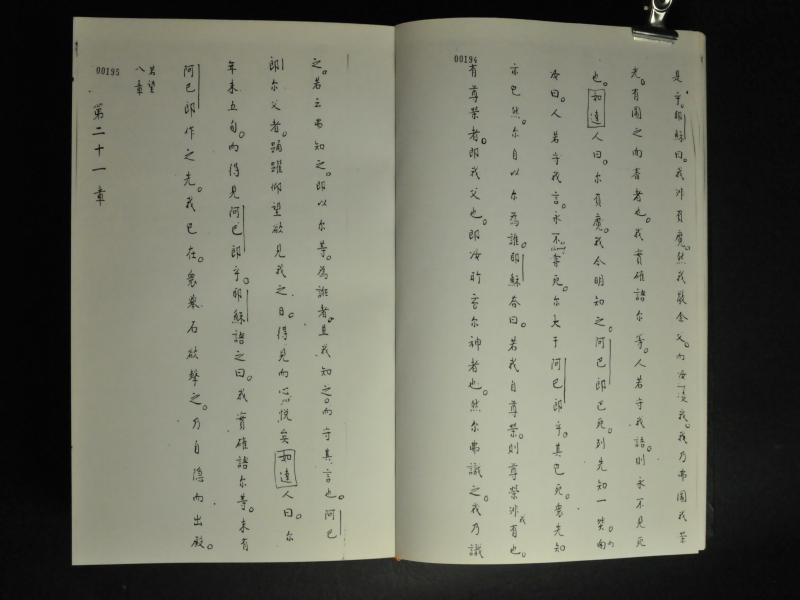 00194
是乎。耶穌曰。我非有魔。然我敬余父。而汝慢我。我乃弗圖我榮
光。有圖之而審者也。我實確語尔等。人若守我語。則永不見死
也。如達人曰。尔有魔。我今明知之。阿巴郎已死。列先知一然。而
尔曰。人若守我言。永不嘗死。尔大于阿巴郎乎。其已死。衆先知
亦已然。尔自以尔為誰。耶穌答曰。若我自尊榮。則尊榮非我有也。
有尊榮者。即我父也。即汝所言尔神者也。然尔弗識之。我乃識
00195
之。若云弗知之。即以尔等。為誑者。並我知之。而守其言也。阿巴
郎尔父者。踴躍仰望欲見我之日。得見而心悅矣。如達人曰。尔
年未五旬。而得見阿巴郎乎。耶穌語之曰。我實確語尔等。未有
阿巴郎作之先。我已在。衆搬石欲擊之。乃自隱而出殿。
若望
八章
第二十一章